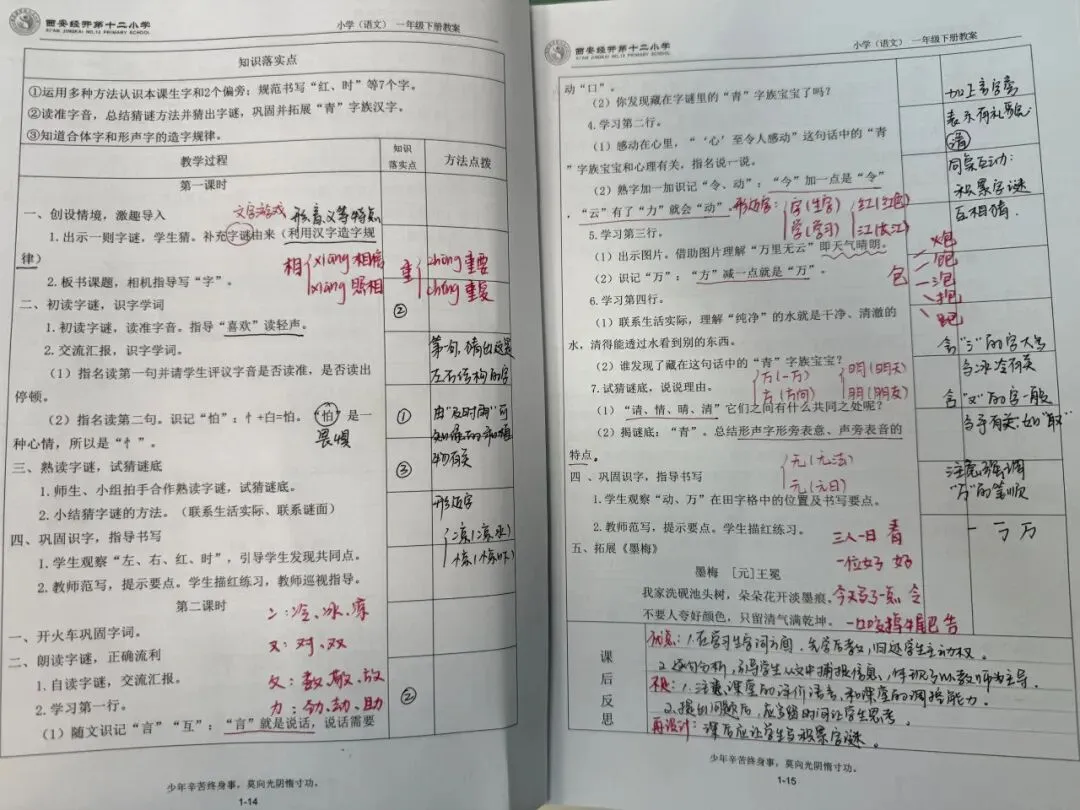 西安经开第十二小学
XI'AN JINGKAI NO.12 PRIMARY SCHOOL
小学（语文） 一年级下册教案
知识落实点
①运用多种方法认识本课生字和2个偏旁；规范书写“红、时”等7个字。
②读准字音，总结猜谜方法并猜出字谜，巩固并拓展“青”字族汉字。
③知道合体字和形声字的造字规律。
教学过程
知识
落实点
方法点拨
第一课时
一、创设情境，激趣导入
文字游戏
形音义等特点
1.出示一则字谜，学生猜。补充字谜由来（利用汉字造字规
律）
相 xiāng 相信
xiàng 照相
重 zhòng 重要
chóng 重复
2.板书课题，相机指导写“字”。
二、初读字谜，识字学词
②
1.初读字谜，读准字音。指导“喜欢”读轻声。
2.交流汇报，识字学词。
（1）指名读第一句并请学生评议字音是否读准，是否读出
停顿。
第一句，猜出这是
左右结构的字
（2）指名读第二句。识记“怕”：忄+白=怕。“怕”是一
种心情，所以是“忄”。
畏惧
①
由“及时雨”可
三、熟读字谜，试猜谜底
③
1.师生、小组拍手合作熟读字谜，试猜谜底。
2.小结猜字谜的方法。（联系生活实际、联系谜面）
形近字
凉（凉水）
四、巩固识字，指导书写
1.学生观察“左、右、红、时”，引导学生发现共同点。
2.教师范写，提示要点。学生描红练习，教师巡视指导。
第二课时
冫：冷、冰、凉
一、开火车巩固字词。
又：对、双
二、朗读字谜，正确流利
1.自读字谜，交流汇报。
攵：数、敬、放
2.学习第一行。
力：动、助
②
（1）随文识记“言”“互”：“言”就是说话，说话需要
少年辛苦终身事，莫向光阴惰寸功。
1-14
西安经开第十二小学
XI'AN JINGKAI NO.12 PRIMARY SCHOOL
小学（语文） 一年级下册教案
动“口”。
（2）你发现藏在字谜里的“青”字族宝宝了吗？
加上言字旁
表示有礼貌：
请
4.学习第二行。
（1）感动在心里，“‘心’至令人感动”这句话中的“青
”字族宝宝和心理有关，指名说一说。
同桌互动：
积累字谜
互相猜.
（2）熟字加一加识记“令、动”：“今”加一点是“令”
，“云”有了“力”就会“动”。
形近字：字（生字）
学（学习）
红（红色）
江（长江）
5.学习第三行。
（1）出示图片。借助图片理解“万里无云”即天气晴朗。
（2）识记“万”：“方”减一点就是“万”。
包
火炮
6.学习第四行。
（1）联系生活实际，理解“纯净”的水就是干净、清澈的
水，清得能透过水看到别的东西。
含“冫”的字大多
与冰冷有关
（2）谁发现了藏在这句话中的“青”字族宝宝？
7.试猜谜底，说说理由。
万（一万）
方（方向）
明（明天）
朋（朋友）
含“又”的字一般
与手有关，如“取”
（1）“请、情、晴、清”它们之间有什么共同之处呢？
（2）揭谜底：“青”。总结形声字形旁表意、声旁表音的
特点。
元（元日）
注意强调
“万”的笔顺
四、巩固识字，指导书写
1.学生观察“动、万”在田字格中的位置及书写要点。
2.教师范写，提示要点。学生描红练习。
一 丂 万
三人一日 春
五、拓展《墨梅》
一位女子 好
墨梅 [元]王冕
我家洗砚池头树，朵朵花开淡墨痕。
今天写了一点 令
不要人夸好颜色，只留清气满乾坤。
一口咬掉牛尾巴 告
课后反思
优点：1.在学习生字词方面，先学后教，归还学生主动权。
2.逐句分析，引导学生从文中捕捉信息，体现了以教师为主导.
不足：1.注意课堂的评价语言，和课堂的调控能力。
2.提出问题后，应多留时间让学生思考。
再设计：课后应让学生多积累字谜。
少年辛苦终身事，莫向光阴惰寸功。
1-15